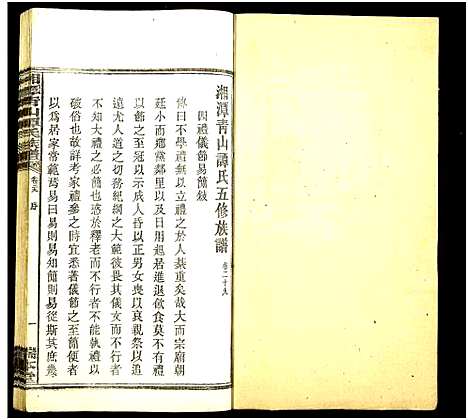 湘潭青山譚氏五修族譜 卷二十九
四禮儀節易簡敘
傳曰不學禮無以立禮之於人綦重矣哉大而宗廟朝
廷小而鄉黨鄰里以及日用起居進退飲食莫不有
節之至冠以示成人昏以正男女喪以哀親祭以追
遠尤人道之切務紀綱之大範彼畏其儀文而不行者
破俗也故詳考家禮參之時宜悉著儀節之至簡便者
以為居家常範焉易曰易則易知簡則易從斯其庶幾
不知文之必簡也惑於釋老而不行者不能執禮以
湘潭青山譚氏族譜
卷二十九
序
一